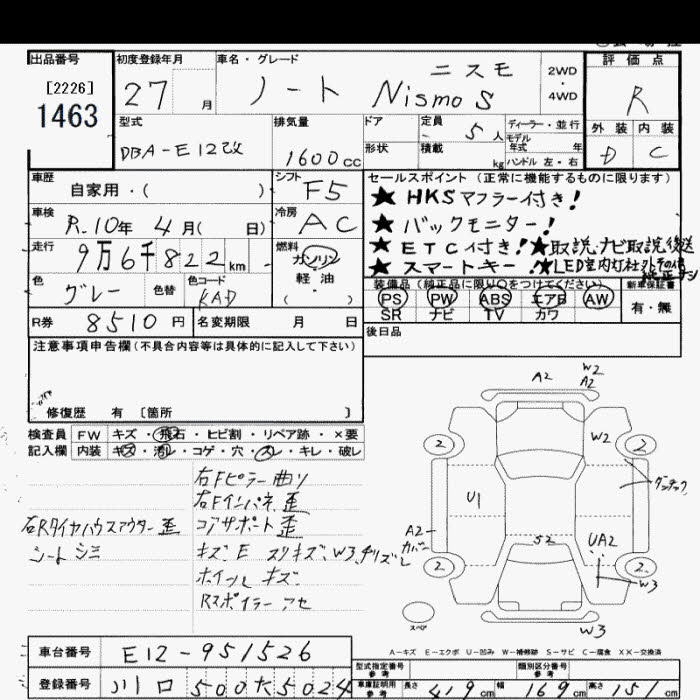 出品番号
[2226]
1463
初度登録年月
27 月
車名・グレード
ニスモ
ノート Nismo S
2WD
・
4WD
評価点
R
外装 内装
D C
型式
DBA-E12改
排気量
1600 cc
ドア
形状
定員 5人
積載 kg
ディーラー・並行
モデル
年式 年
ハンドル 左・右
車歴
自家用・( )
シフト
F5
車検
R.10年 4月( 日)
冷房
AC
走行
9万6千822km
燃料
ガソリン
軽油
( )
色
グレー
色替
色コード
KAD
R券 8510円
名変期限 月 日
セールスポイント(正常に機能するものに限ります)
★HKSマフラー付き!
★バックモニター!
★ETC付き!★取説・ナビ取説後送
★スマートキー!★LED室内灯社外その他
装備品(純正品に限り○をつけてください)
PS PW ABS エアB AW
SR ナビ TV カワ
新車保証書
有・無
後日品
注意事項申告欄(不具合内容等は具体的に記入して下さい)
修復歴 有 [箇所 ]
検査員 FW キズ・飛石・ヒビ割・リペア跡・×要
記入欄 内装 キズ・汚レ・コゲ・穴・スレ・キレ・破レ
右Fピラー曲り
右Fインパネ歪
右Rタイヤハウスアウター歪
コアサポート歪
シートシミ
キズ、E スリキズ、W3、チリズレ
ホイール キズ
Rスポイラーアセ
A2
W2
A2
W2
2
2
U1
A2
カバー
S2
UA2
2
2
W3
W3
スペア
A−キズ E−エクボ U−凹み W−補修跡 S−サビ C−腐食 X X−交換済
車台番号 E12-951526
登録番号 川口 500 た 5024
型式指定番号
参考
類別区分番号
参考
車庫証明用
参考
長さ 419cm 幅 169cm 高さ 151cm